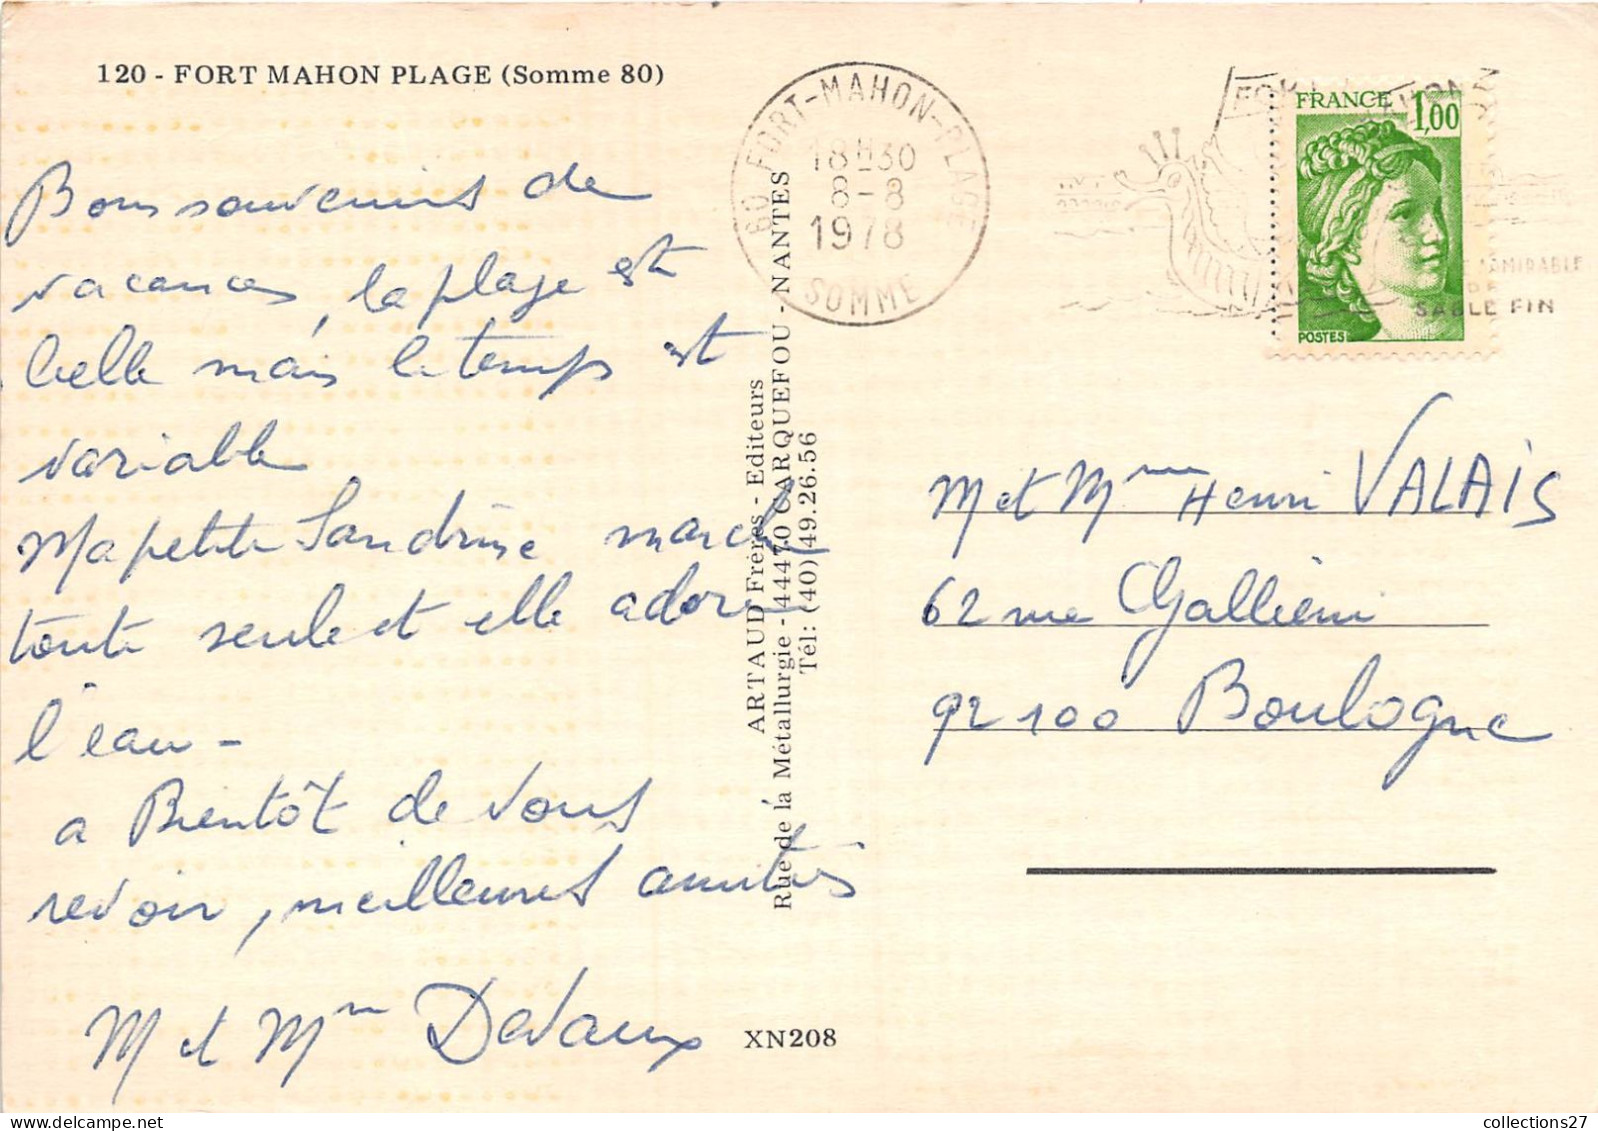 120 - FORT MAHON PLAGE (Somme 80)
Bons souvenirs de
vacances, la plage est
belle mais le temps est
variable
Ma petite Sandrine marche
toute seule et elle adore
l'eau -
a Bientôt de vous
revoir, meilleures amitiés
M et Mme Devaux
ARTAUD Frères - Editeurs
Rue de la Métallurgie - 44470 CARQUEFOU - NANTES
Tél: (40) 49.26.56
XN208
80 FORT-MAHON-PLAGE
18H30
8-8
1978
SOMME
ADMIRABLE
DE
SABLE FIN
FRANCE 1,00
POSTES
M et Mme Henri VALAIS
62 rue Galliéni
92100 Boulogne
collections27